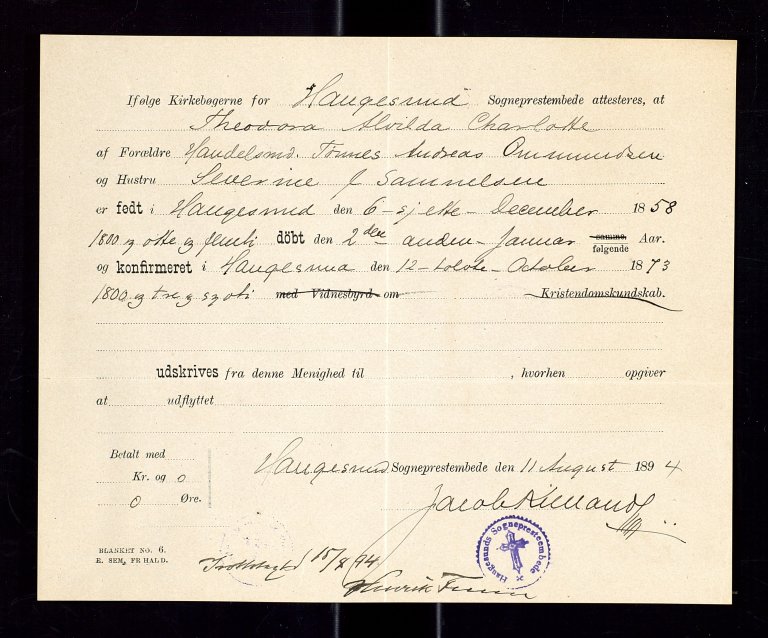 Ifølge Kirkebøgerne for Haugesund Sogneprestembede attesteres, at
Theodora Alvilda Charlotte
af Forældre Handelsmd. Tønnes Andreas Ommundsen
og Hustru Severine J Samuelsen
er født i Haugesund den 6 - sjette - December 1858
1800 og otte og femti døbt den 2den anden - Januar samme følgende Aar.
og konfirmeret i Haugesund den 12 - tolvte - October 1873
1800 og tre og sytti med Vidnesbyrd om Kristendomskundskab.
udskrives fra denne Menighed til , hvorhen opgiver
at udflyttet
Betalt med
Kr. og 0
0 Øre.
Haugesund Sogneprestembede den 11 August 1894
Jacob Kielland
Haugesunds Sogneprestembede
BLANKET NO. 6.
E. SEM, FR HALD.
15/8 94
Henrik